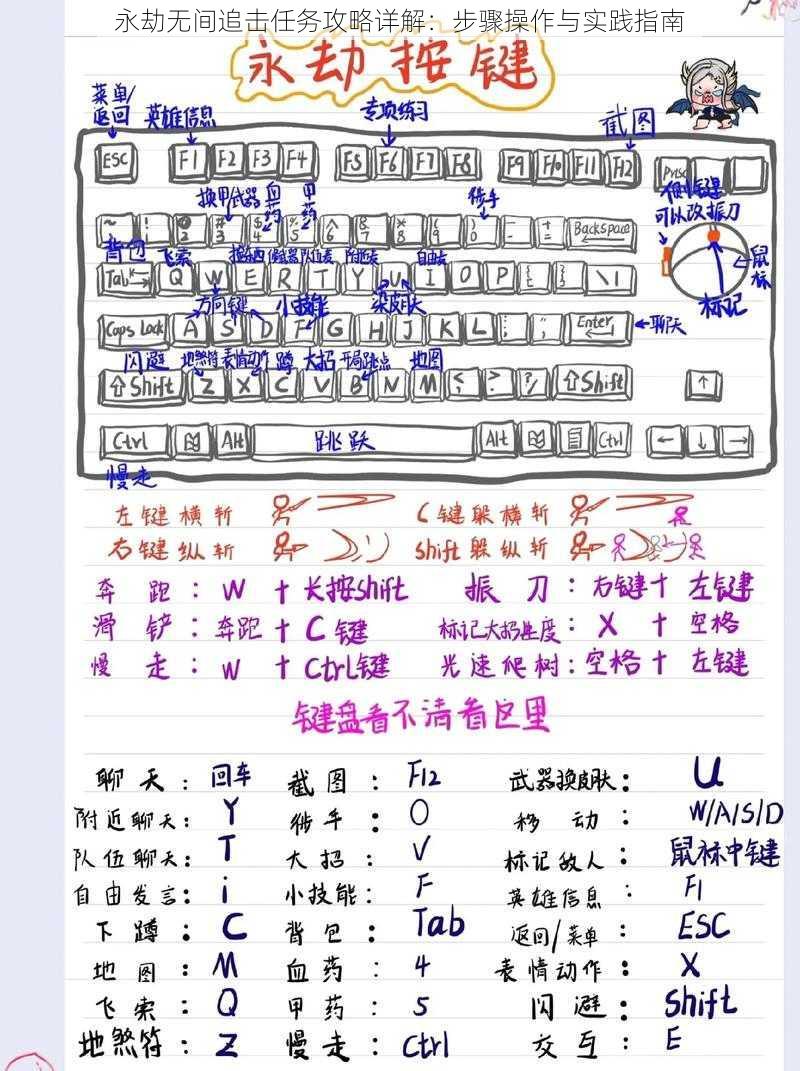 永劫无间追击任务攻略详解：步骤操作与实践指南
永劫按键
菜单/
返回
英雄信息
专项练习
截图
ESC F1 F2 F3 F4 F5 F6 F7 F8 F9 F10 F11 F12 Prtsc
换甲 武器 血药 甲药
徒手
侧键
可以改振刀
~ ! 2 # 3 $ 4 % 5 ^ 6 & 7 * 8 ( 9 ) 0 - - + = Backspace
背包 飞索 队伍发 附近发 自由发
鼠标
Tab Q W E R T Y U I O P { [ } ] \ |
方向键 小技能 染皮肤
标记
Caps Lock A S D F G H J K L : ; " ' Enter
聊天
闪避 地煞符 表情动作 蹲 大招 开局跳点 地图
⇧Shift Z X C V B N M < ? / ⇧Shift ↑
Ctrl Alt 跳跃 Alt Ctrl ← ↓ →
慢走
左键横斩 C键躲横斩
右键纵斩 shift躲纵斩
奔跑：W + 长按shift 振刀：右键+左键
滑铲：奔跑+C键 标记大招进度：X + 空格
慢走：W + Ctrl键 光速爬树：空格+左键
键盘看不清看这里
聊天：回车 截图：F12 武器换皮肤：U
附近聊天：Y 徒手：O 移动：W/A/S/D
队伍聊天：T 大招：V 标记敌人：鼠标中键
自由发言：i 小技能：F 英雄信息：F1
下蹲：C 背包：Tab 返回/菜单：ESC
地图：M 血药：4 表情动作：X
飞索：Q 甲药：5 闪避：Shift
地煞符：Z 慢走：Ctrl 交互：E